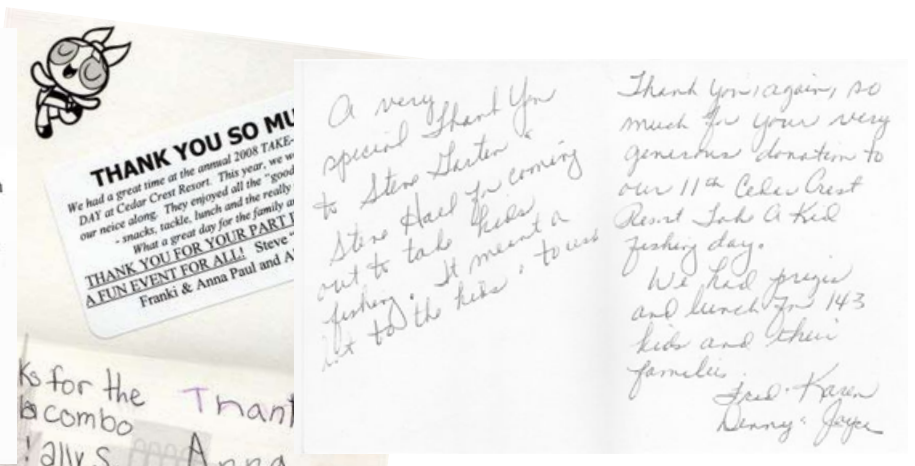 THANK YOU SO MU
We had a great time at the annual 2008 TAKE-
DAY at Cedar Crest Resort. This year, we w
our neice along. They enjoyed all the "good
- snacks, tackle, lunch and the really
What a great day for the family a
THANK YOU FOR YOUR PART I
A FUN EVENT FOR ALL! Steve "
Franki & Anna Paul and A
ks for the
combo
ally.s
Thank
Anna
A very
special Thank You
to Steve
Steve Hall for coming
out to take kids
fishing. It meant a
lot to the kids & to us
Thank you, again, so
much for your very
generous donation to
our 11th Cedar Crest
Resort Take A Kid
fishing day.
We had prizes
and lunch for 143
kids and their
families.
Fred & Karen
Denny & Joyce